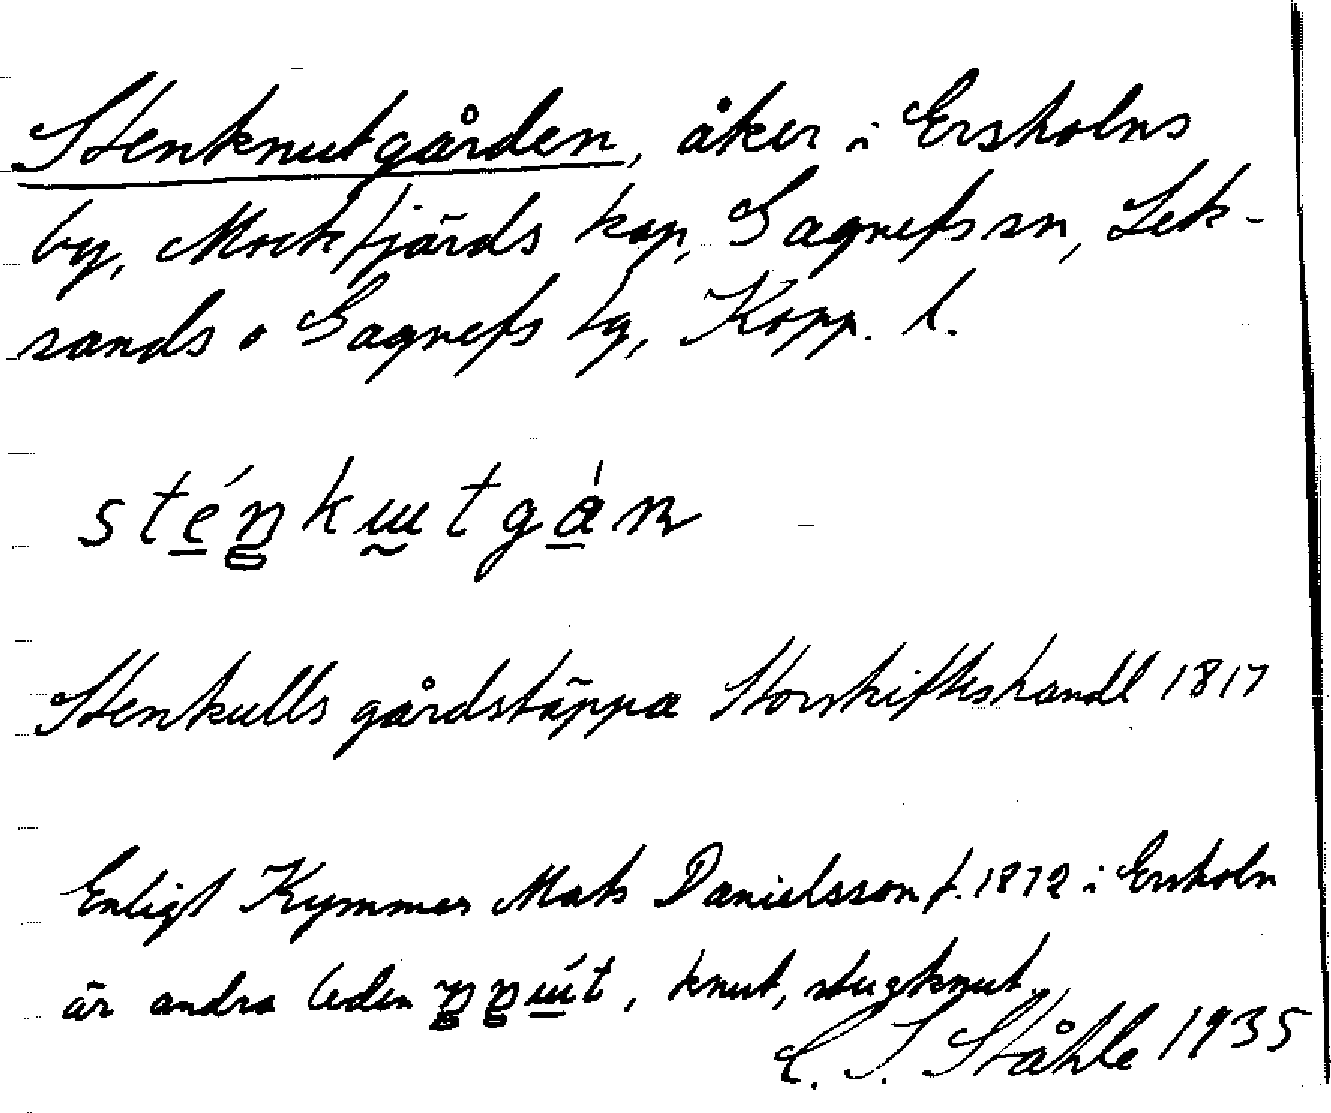 Stenknutgården, åker i Ersholns
by, Mockfjärds kap, Gagnefs sn, Lek-
sands o Gagnefs tg, Kopp. l.
Stenkulls gårdstäppa Storskifteshandl 1817
Enligt Kymmes Mats Danielsson f. 1872 i Ersholn
är andra leden, knut, stugknut.
C. I. Ståhle 1935